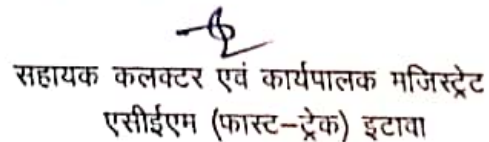 सहायक कलक्टर एवं कार्यपालक मजिस्ट्रेट
एसीईएम (फास्ट-ट्रेक) इटावा